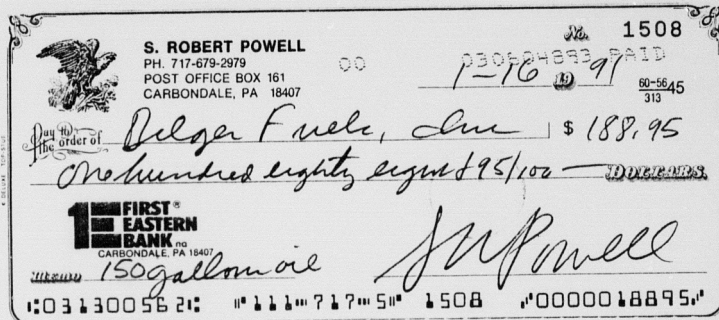 No. 1508
S. ROBERT POWELL
PH. 717-679-2979
POST OFFICE BOX 161
CARBONDALE, PA 18407
00 030604893 PAID
1-16 19 91
60-56 45
313
Pay to the order of Bilger Fuels, Inc $ 188.95
One hundred eighty eight & 95/100 DOLLARS
1E FIRST ® EASTERN BANK na
CARBONDALE, PA 18407
MEMO 150 gallons oil S R Powell
⑆031300562⑆ ⑈111⑉717⑉5⑈ 1508 ⑈0000018895⑈